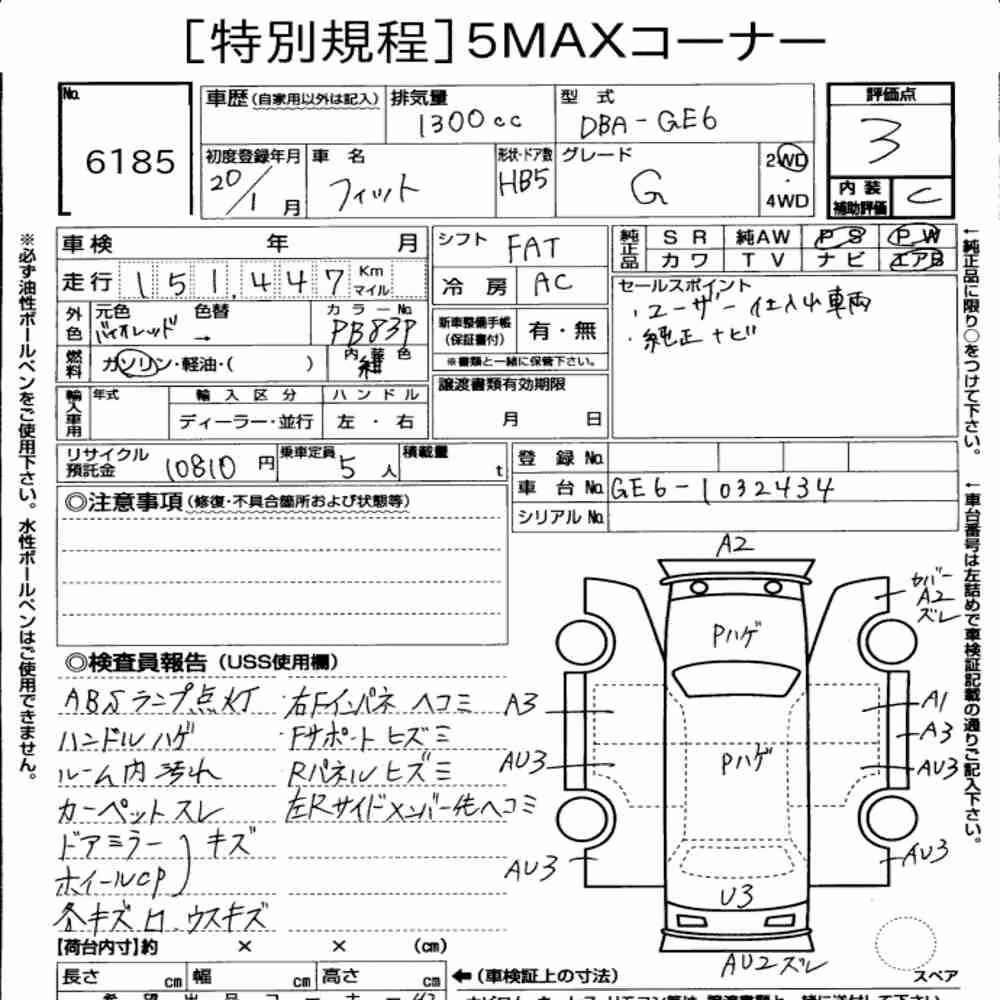 [特別規程]5MAXコーナー
No. 6185
車歴(自家用以外は記入) 排気量 1300cc 型式 DBA-GE6
評価点 3
初度登録年月 20/1月 車名 フィット 形状・ドア数 HB5 グレード G 2WD・4WD
内装補助評価 C
※必ず油性ボールペンをご使用下さい。水性ボールペンはご使用できません。
車検 年 月
走行 151,447 Km マイル
外色 元色 バイオレッド 色替 → カラーNo. PB83P
燃料 ガソリン・軽油・( ) 内装色
輸入車用 年式 輸入区分 ディーラー・並行 ハンドル 左・右
シフト FAT
冷房 AC
新車整備手帳(保証書付) 有・無
※書類と一緒に保管下さい。
譲渡書類有効期限
月 日
純正品 SR 純AW PS PW
カワ TV ナビ エアB
セールスポイント
・ユーザー仕入出車両
・純正ナビ
←純正品に限り○をつけて下さい。
リサイクル預託金 10810円 乗車定員 5人 積載量 t
登録No.
車台No. GE6-1032434
シリアルNo.
←車台番号は左詰めで車検証記載の通りご記入下さい。
◎注意事項(修復・不具合箇所および状態等)
◎検査員報告(USS使用欄)
ABSランプ点灯 右Fインパネ ヘコミ
ハンドルハゲ Fサポート ヒズミ
ルーム内汚れ Rパネル ヒズミ
カーペットスレ 左Rサイドメンバー先ヘコミ
ドアミラー キズ
ホイールcP
各キズ凹、ウスキズ
A2
カバー
A2
ズレ
Pハゲ
A3
A1
A3
AU3
Pハゲ
AU3
AU3
AU3
U3
AU2ズレ
スペア
【荷台内寸】約 × × (cm)
長さ cm 幅 cm 高さ cm ←(車検証上の寸法)